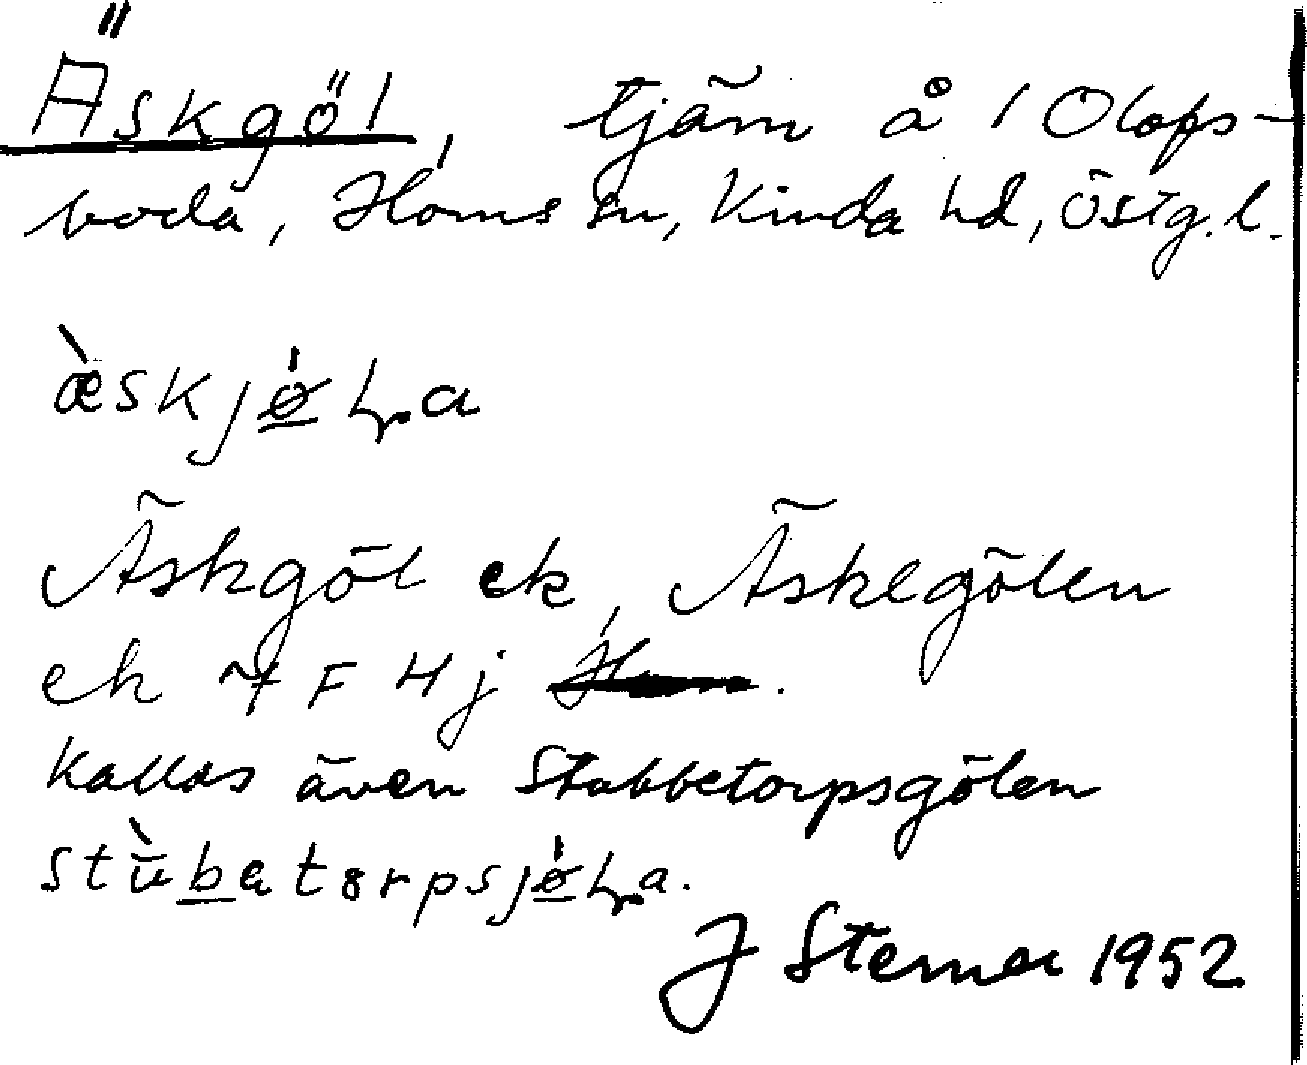 Äskgöl, tjärn å 1 Olofs-
boda, Horns sn, Kinda hd, Östg. l.
æ̀skjǿ̲ɽa
Äskgöl ek, Äskegölen
ek ~ F H j
Kallas även Stubbetorpsgölen
stùb̲etɵrpsjǿ̲ɽa.
J Sterner 1952